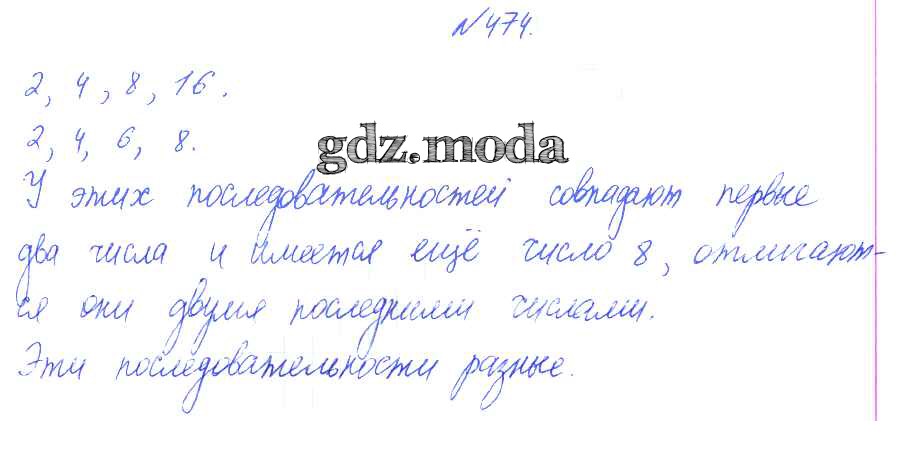 № 474.
2, 4, 8, 16.
2, 4, 6, 8.
gdz.moda
У этих последовательностей совпадают первые
два числа и имеется ещё число 8, отличают-
ся они двумя последними числами.
Эти последовательности разные.